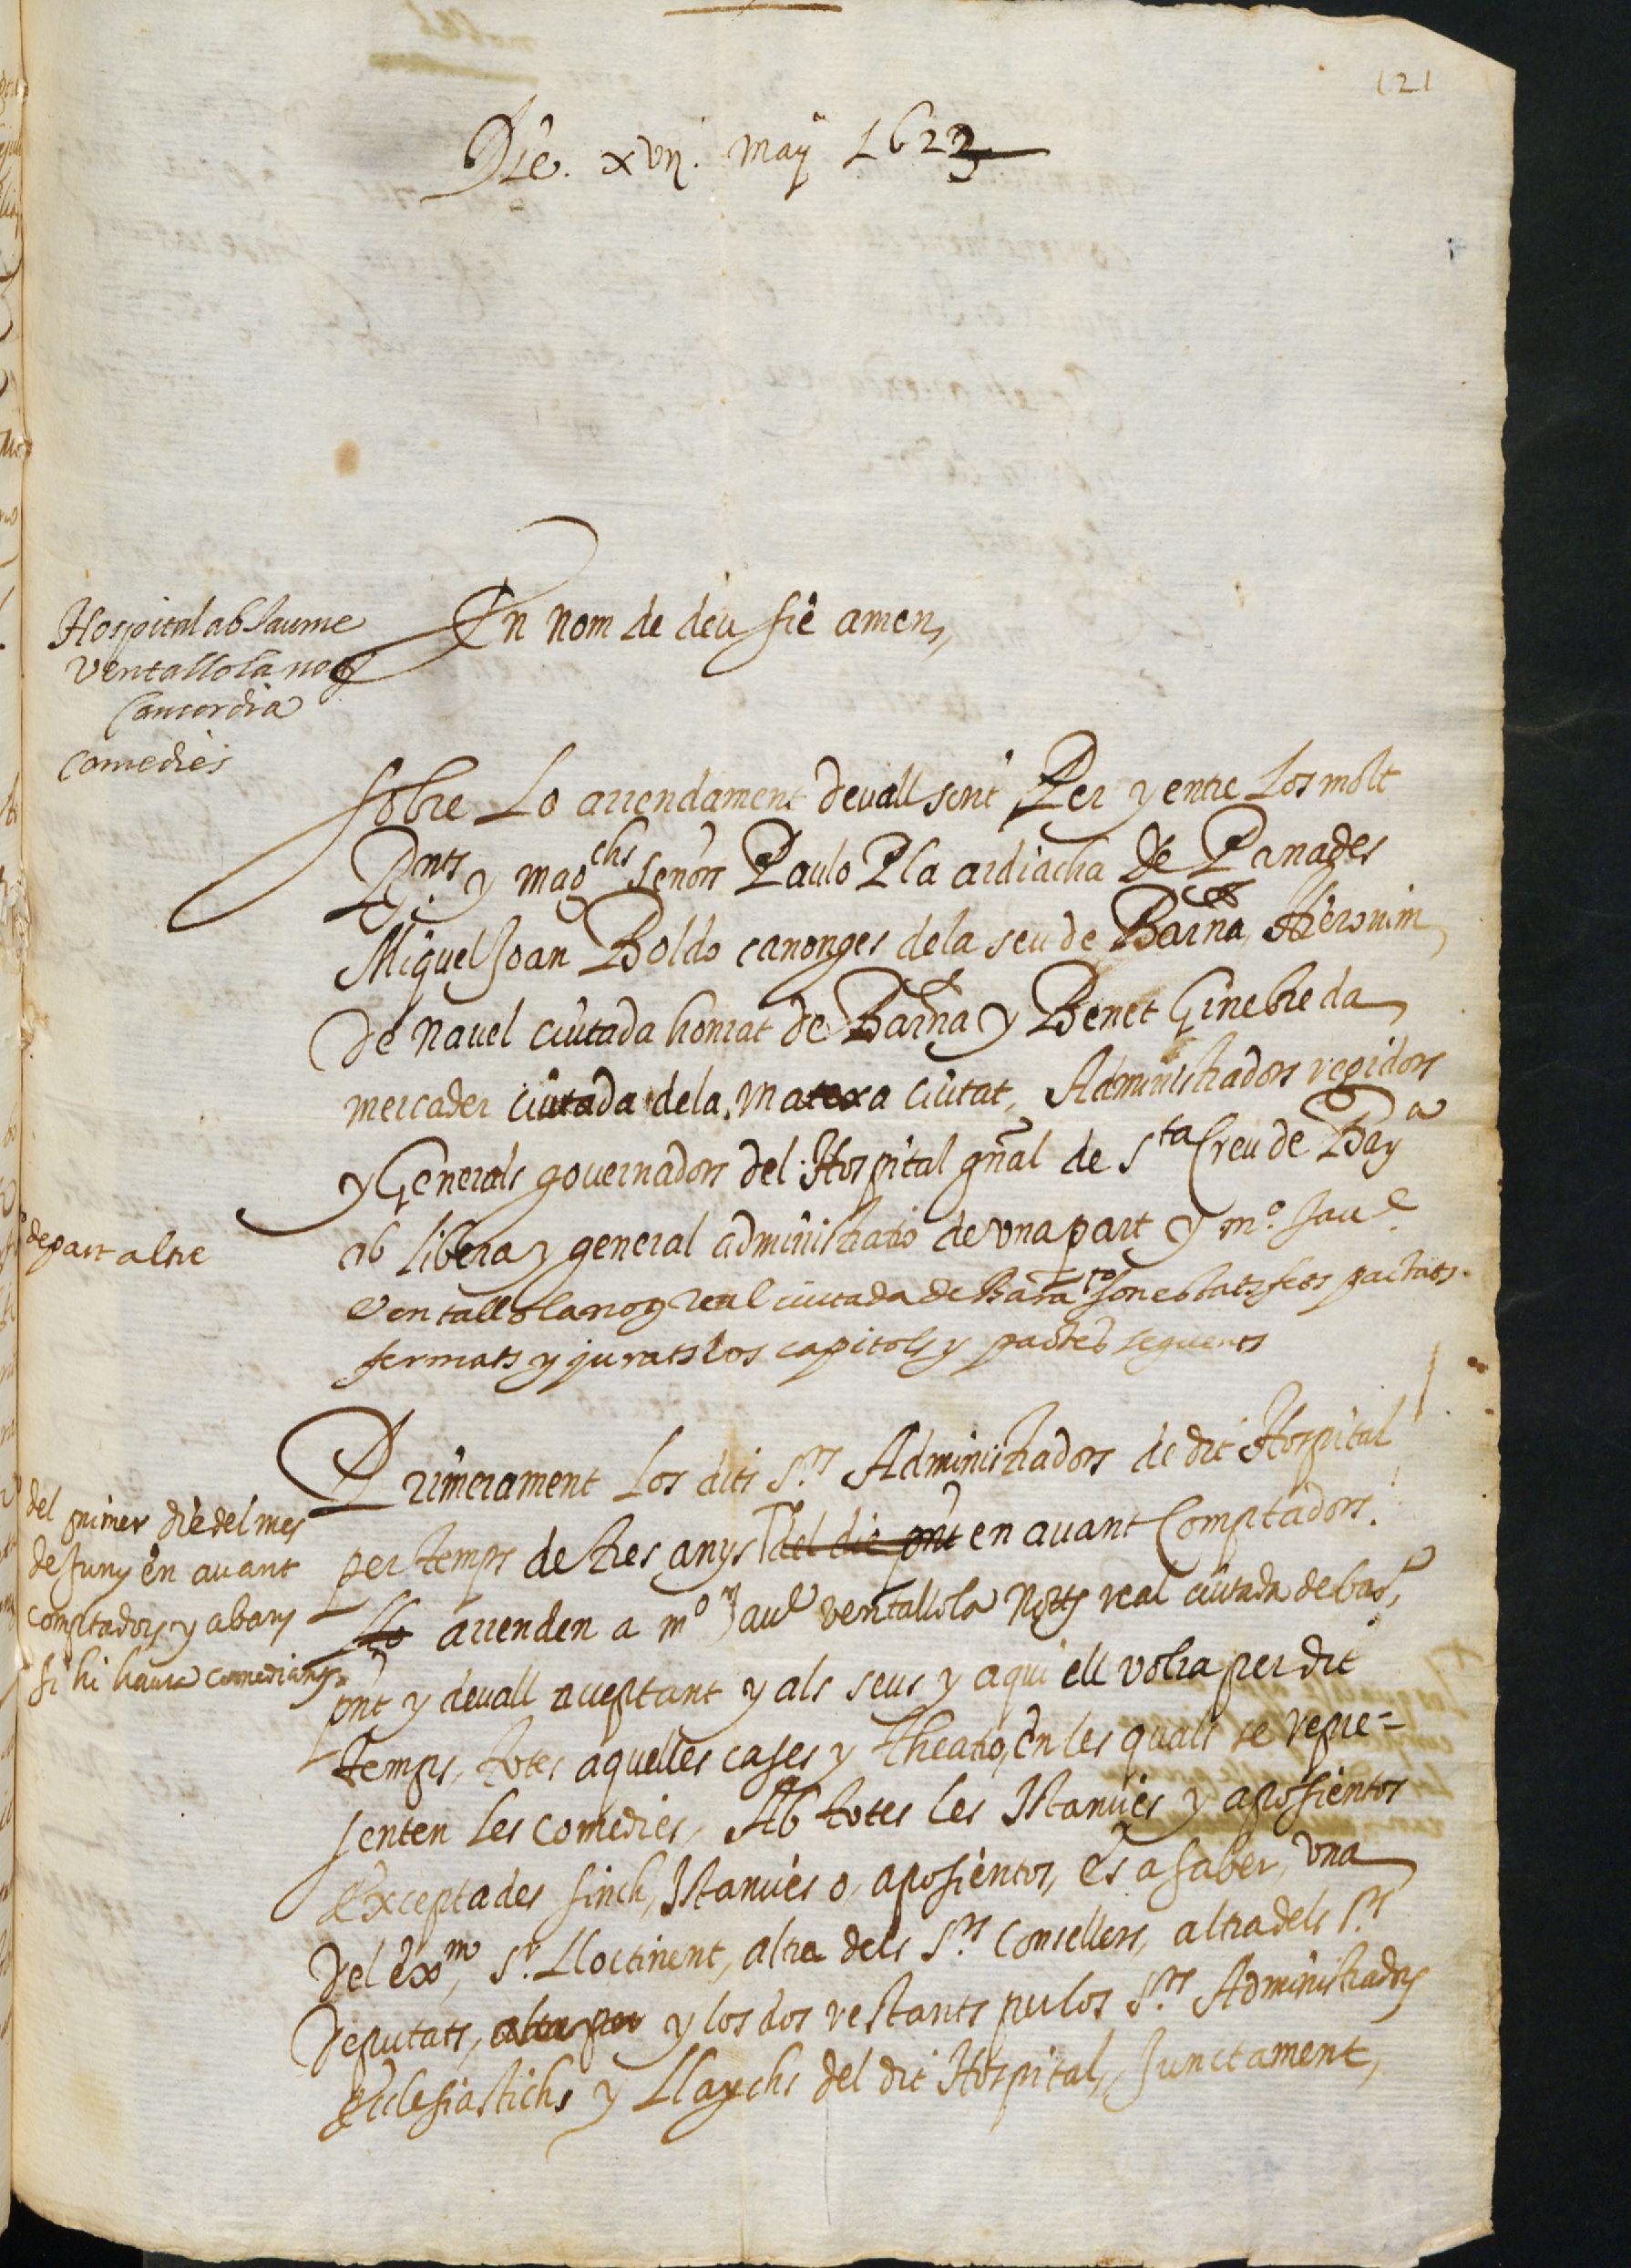 121
Die. xvij. maÿ 1623
Hospital ab Jaume
ventallola not
Concordia
Comedies
En nom de deu sie amen,
sobre Lo arrendament devall scrit Per y entre Los molt
R.nts y mag.chs señors Paulo Pla ardiacha de Panades
Miquel Joan Boldo canonges dela seu de Barña, Hieronim
de navel ciutada honrat de Barña y Benet Ginebreda
mercader ciutada dela matexa ciutat, Administradors regidors
y Generals governadors del Hospital gñal de S.ta Creu de Bar.a
de part altre
ab libera y general administratio de una part y m.o Jau.e
Ventallola not real ciutada de Barña son estats fets pactats
fermats y jurats los capitols y pactes seguents
Primerament Los dits S.rs Administradors de dit Hospital
del primer die del mes
de Juny en avant
comptadors y abans
si hi haura comedians
per temps de tres anys del die pñt en avant Comptadors.
arrenden a m.o Jau.e ventallola Nott real ciutada de bar.a
pñt y devall acceptant y als seus y a qui ell volra per dit
temps, totes aquelles cases y theatro, en les quals se repre=
senten Les comedies, Ab totes les Istancies y aposientos
exceptades sinch, Istancies o, aposientos, es a saber, una
del ex.m, S.r Lloctinent, altra dels S.rs Consellers, altra dels S.rs
Deputats, altra per y los dos restants per los S.rs Administradors
Ecclesiastichs y Llaychs del dit Hospital, Junctament,